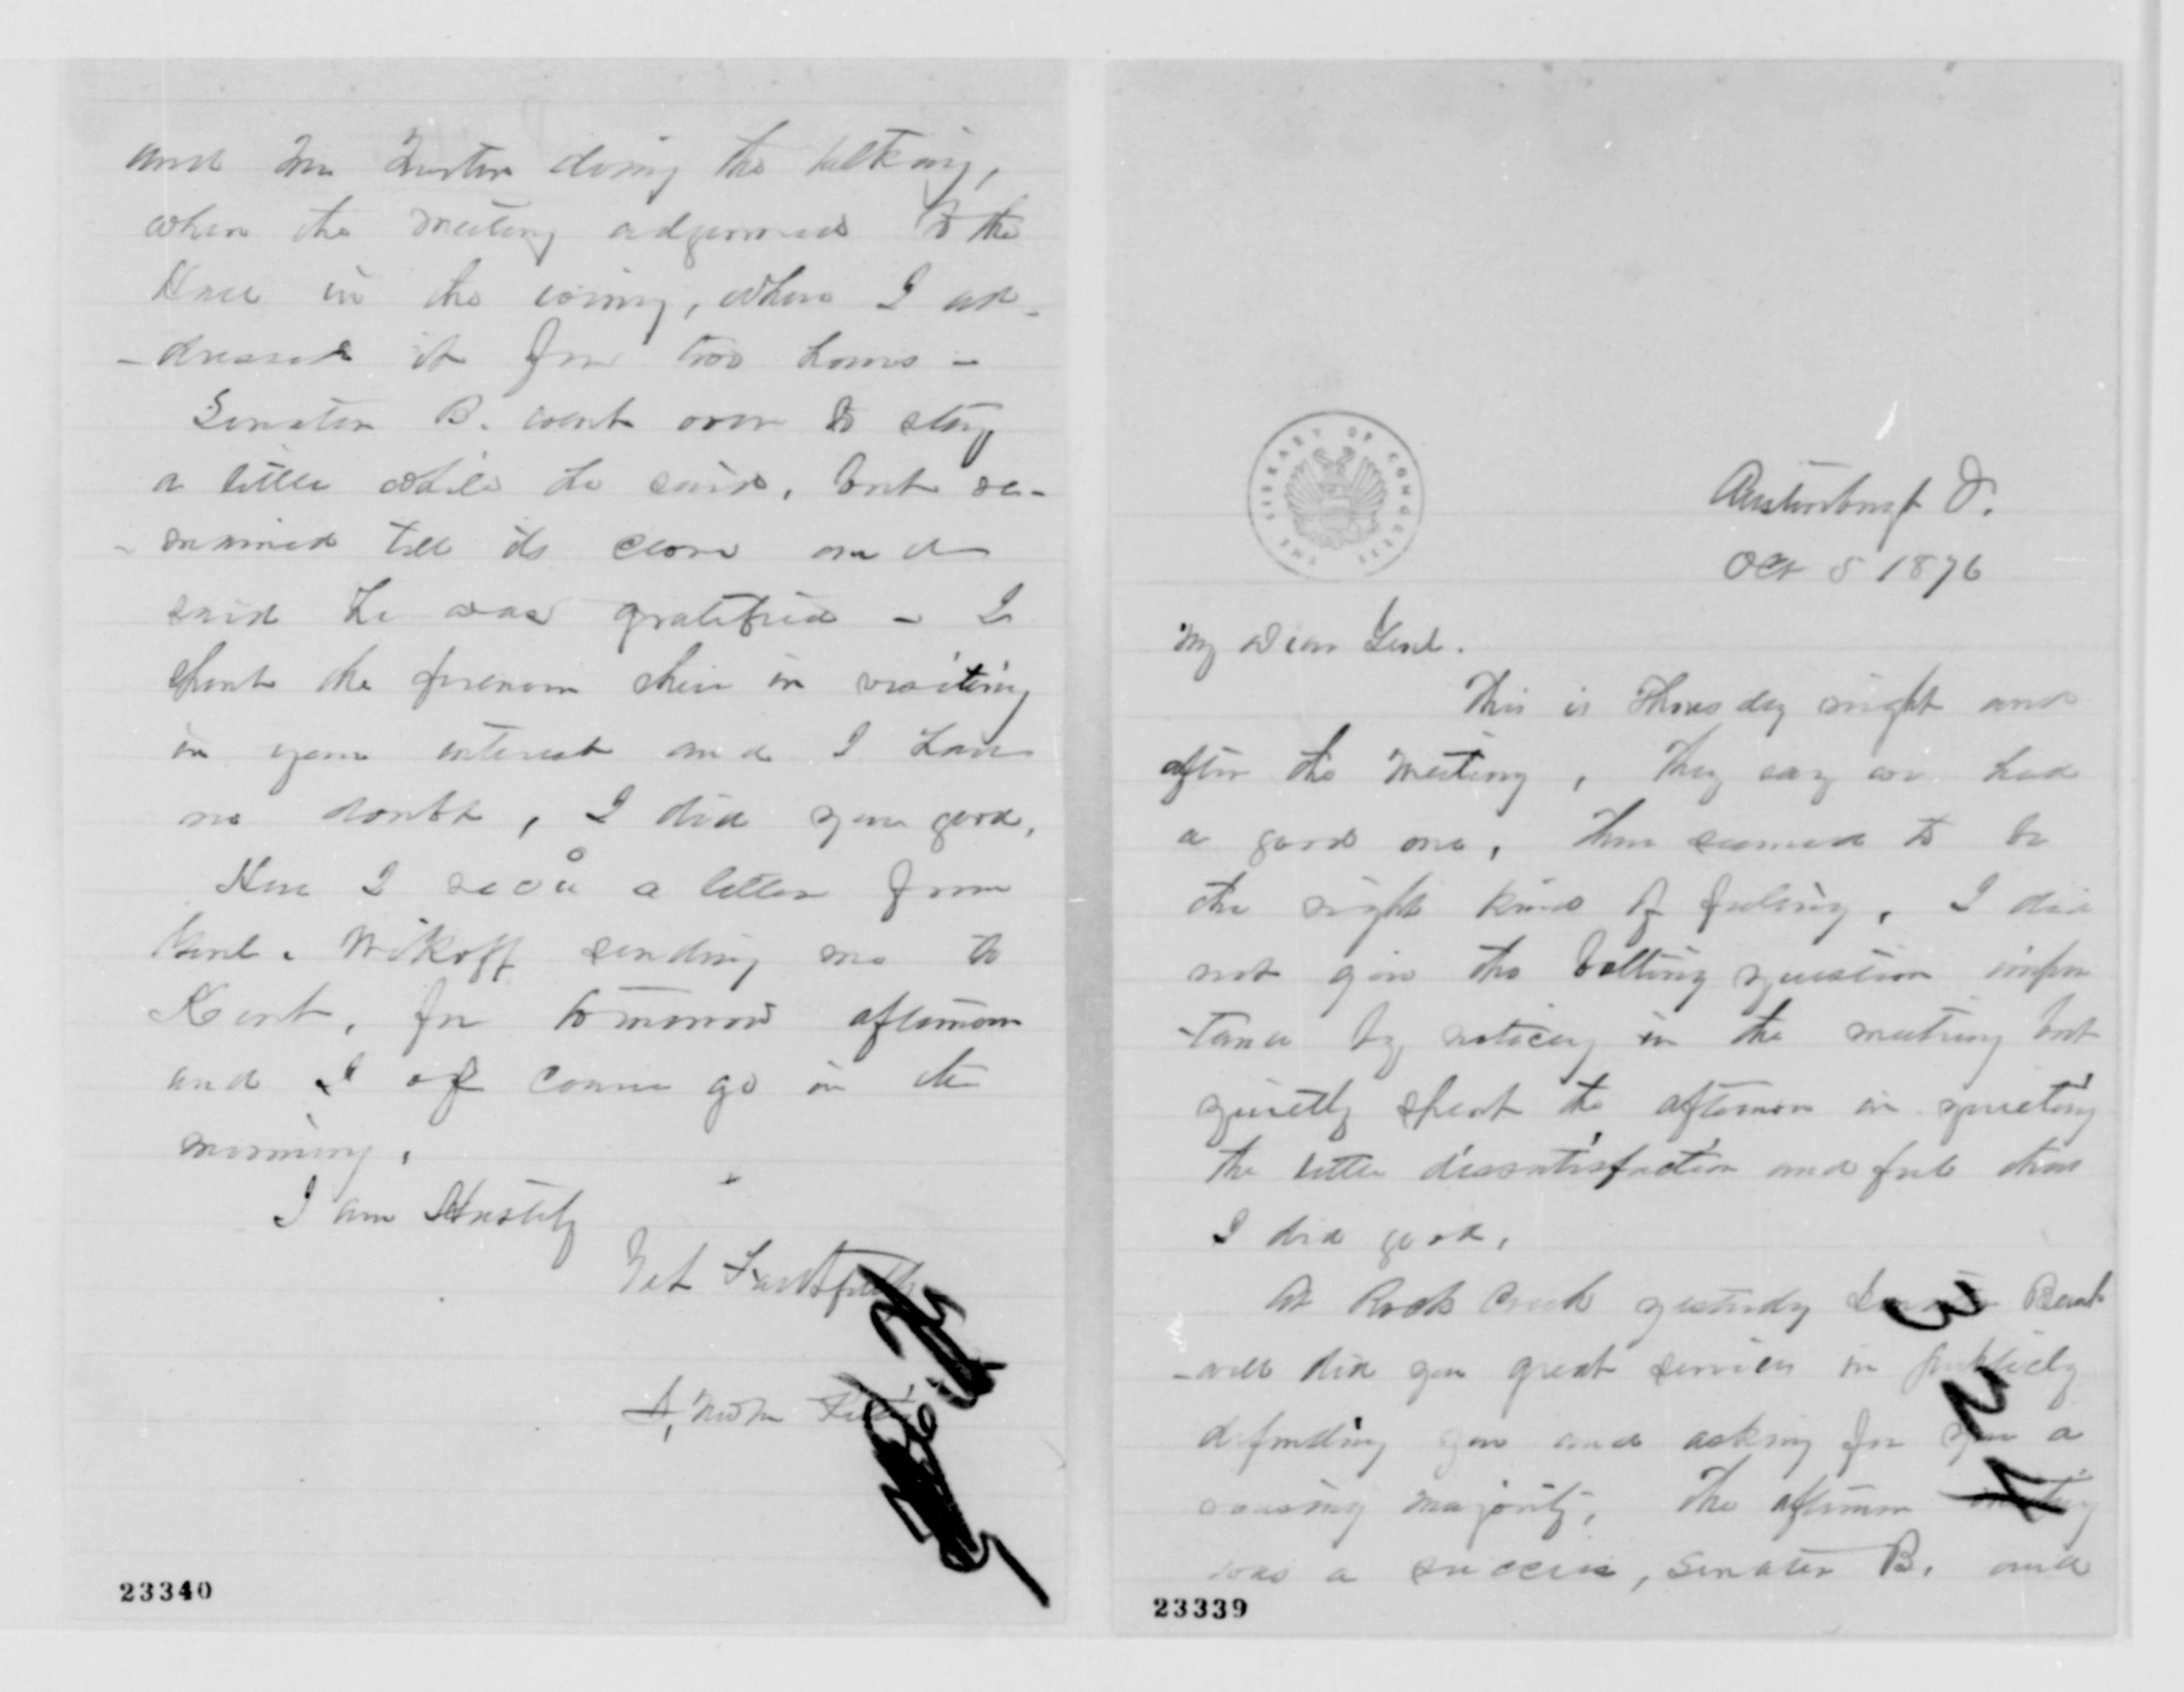 Austinburgh O.
Oct 5 1876
My Dear Genl.
This is Thursday night and
after the meeting, They say we had
a good one, There seemed to be
the right kind of feeling, I did
not give the bolting question impor
-tance by noticing in the meeting but
quietly spent the afternoon in quieting
the little dissatisfaction and feel that
I did good,
At Rock Creek yesterday Senator Bunk
-well did you great service in publicly
defending you and asking for you a
rousing majority, The afternoon meeting
was a success, Senator B. and
23339
and Mr doing the talking,
when the meeting adjourned to the
in the , where I ad-
-dressed it for two hours -
Senator B. went over to stay
a little while he said, but re-
-mained till its close and
said he was gratified - I
spent the forenoon there in visiting
in your interest and I have
no doubt, I did you good,
Here I recd a letter from
Genl. Wikoff sending me to
Kent, for tomorrow afternoon
and I of course go in the
morning,
I am Hastily
Yet Faithfully
23340
THE LIBRARY OF CONGRESS